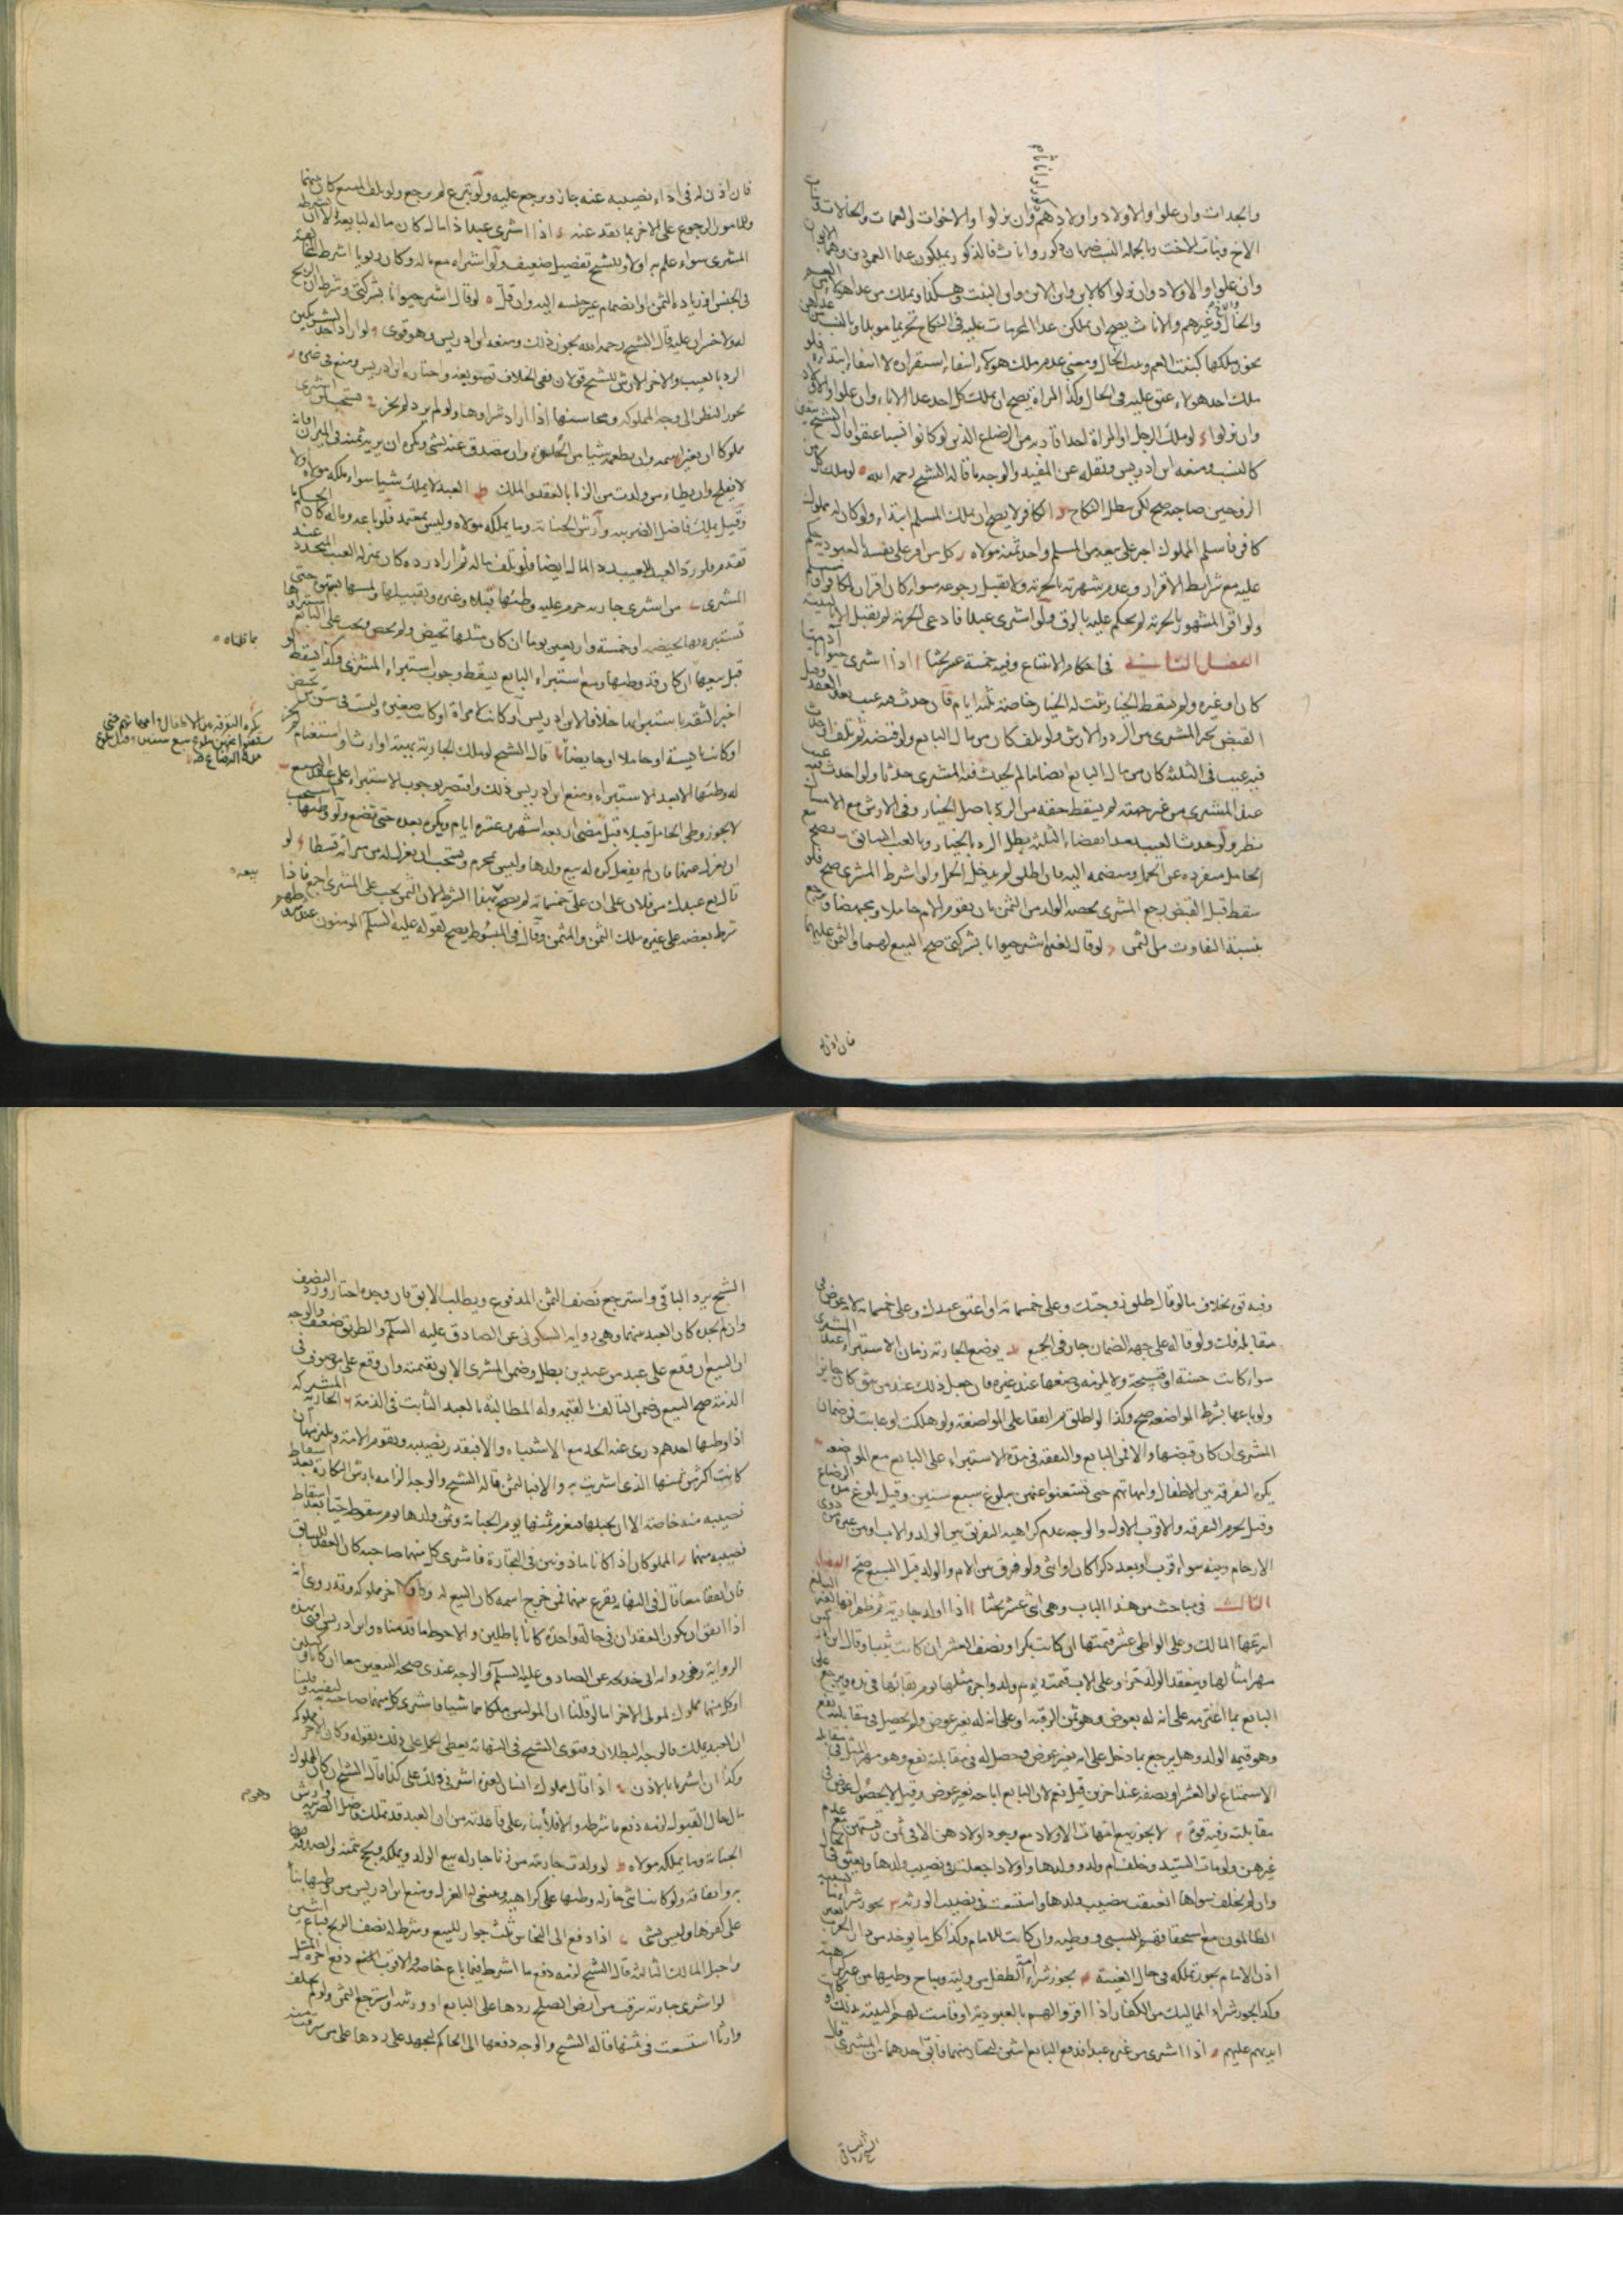 والجدات وان علوا والاولاد واولادهم وان نزلوا والاخوات والعمات والخالات وبنات
الاخ وبنات الاخت وبالجملة النسب ضربان ذكور واناث فالذكور يملكون عدا العمودين وهما الابوان
وان علوا والاولاد وان نزلوا كالابن وابن الابن وابن البنت وهكذا ويملك من عدا هولاء
والخال وغيرهم والاناث يصح ان يملكن عدا المحرمات عليه في النكاح تحريما موبدا بالنسب
يجوز ملكها كبنت العم وبنت الخال ومعنى عدم ملك هولاء انتفاء استقراره لا انتفاء ابتدائه فلو
ملك احد هولاء عتق عليه في الحال وكذا المراة يصح ان يملك كل احد عدا الاباء وان علوا والاولاد
وان نزلوا لو ملك الرجل او المراة احدا قاربه من الرضاع الذين لو كانوا نسبا عتقوا قال الشيخ
كالنسب ومنعه ابن ادريس ونقله عن المفيد والوجه ما قاله الشيخ رحمه الله لو ملك كل من
الزوجين صاحبه صح لكن يبطل النكاح الكافر لا يصح ان يملك المسلم ابتداء ولو كان له مملوك
كافر فاسلم المملوك اجبر على بيعه من المسلم واخذ ثمنه مولاه كل من اقر على نفسه بالعبودية حكم
عليه مع شرايط الاقرار وعدم شهرته بالحرية ولا يقبل رجوعه سواء كان اقران لكافر او
ولو اقر المشهور بالحرية لم يحكم عليه بالرق ولو اشترى عبدا فادعى الحرية لم يقبل الا بالبينة
الفصل الثاني في احكام الابتياع وفيه خمسة عشر بحثا ا اذا اشترى حيوانا ادميا
كان او غيره ولم يسقط الخيار ثبت له الخيار خاصة ثلثة ايام فان حدث فيه عيب بعد العقد وقبل
القبض تخير المشترى بين الرد والارش ولو تلف كان من مال البايع ولو قبضه ثم تلف او حدث
فيه عيب في الثلثة كان من مال البايع ايضا ما لم يحدث فيه المشترى حدثا ولو احدث فيه عيب
عند المشترى من غير جهته لم يسقط حقه من الرد باصل الخيار وفي الارش مع الامساك
نظر ولو حدث العيب بعد انقضاء الثلثة بطل الرد بالخيار وبالعيب السابق يصح بيع
الحامل منفرده عن الحمل ومنضمة اليه فان اطلق لم يدخل الحمل ولو اشترط المشترى صح فلو
سقط قبل القبض رجع المشترى بحصة الولد من الثمن بان يقوم الام حاملا ومجهضا ويرجع
بنسبة التفاوت من الثمن لو قال لغيره اشتر حيوانا بشركتي صح البيع لهما والثمن عليهما
فان اذن له
فان اذن له في اداء نصيبه عنه جاز ويرجع عليه ولو تبرع لم يرجع ولو تلف المبيع كان بينهما
وللمامور الرجوع على الاخر بما نقد عنه اذا اشترى عبدا ذا مال كان ماله لبايعه الا ان يشرطه
المشترى سواء علم به او لا وللشيخ تفصيل ضعيف ولو اشتراه مع ماله وكان ربويا اشترط
في الجنس زيادة الثمن او انضمام غير جنسه اليه وان قل لو قال اشتر حيوانا بشركتي وشرط الربح
له ولا خسران عليه قال الشيخ رحمه الله يجوز ذلك ومنعه ابن ادريس وهو قوي ولو اراد احد الشريكين
الرد بالعيب والاخر الارش للشيخ قولان ففي الخلاف تسويغه واختاره ابن ادريس ومنع في غيره
يجوز النظر الى وجه المملوكه ومحاسنها اذا اراد شراوها ولو لم يرد لم يجز يستحب لمن اشترى
مملوكا ان يغير اسمه وان يطعمه شيا من الحلو وان يتصدق عنه بشي ويكره ان يريه ثمنه في الميزان فانه
لا يفلح وان يطاء من ولدت من الزنا بالعقد والملك ط العبد لا يملك شيا سواء ملكه مولاه اولا
وقيل يملك فاضل الضريبة وارش الجناية وما يملكه مولاه وليس بمعتمد فلو باعه وماله كان الحكم كما
تقدم فلو رد العبد بالعيب رد المال ايضا فلو تلف ماله ثم اراد رده كان بمنزله العيب المتجدد عند
المشترى من اشترى جارية حرم عليه وطئها قبلا وغيره وتقبيلها ولمسها بشهوة حتى
تستبرء بها بحيضه او خمسة واربعين يوما ان كان مثلها تحيض ولم تحض ويجب على البايع استبراوها
قبل بيعها ان كان قد وطئها ومع استبراء البايع يسقط وجوب استبراء المشترى وكذا يسقط لو
اخبر الثقة باستبرائها خلافا لابن ادريس او كانت لامراة او كانت صغيرة وليست في سن من تحيض
او كانت يائسة او حاملا او حايضا قال الشيخ لو ملك الجارية بهبة او ارث او استغنام لم يجز
له وطئها الا بعد الاستبراء ومنع ابن ادريس ذلك واقتصر بوجوب الاستبراء على عقد البيع
لا يجوز وطى الحامل قبلا قبل مضى اربعة اشهر وعشرة ايام ويكره بعده حتى تضع ولو وطئها استحب
ان يعزل عنها فان لم يفعل كره له بيع ولدها وليس بمحرم ويستحب ان يعزل له من ميراثه قسطا لو
قال بع عبدك من فلان على ان على خمسمائة لم يصح هذا الشرط لان الثمن يجب على المشترى اجمع فاذا
شرط بعضه على غيره ملك الثمن والمثمن وقال في المبسوط يصح لقوله عليه السلم المومنون عند شروطهم
ما قلناه
يكره التفرقة بين الاطفال وامهاتهم حتى
يستغنوا عنهن ببلوغ سبع سنين وقيل بلوغ
مدة الرضاع ط
بيعه
وفيه قوة بخلاف ما لو قال طلق زوجتك وعلى خمسمائة او اعتق عبدك وعلى خمسمائة لانه عوض في
مقابلة فك ولو قاله على جهة الضمان جاز في الجميع يوضع الجارية زمان الاستبراء عند المشترى
سواء كانت حسنة او قبيحة ولا يلزمه وضعها عند غيره فان جعل ذلك عند من يثق كان جايز
ولو باعها بشرط المواضعة صح وكذا لو اطلق ثم اتفقا على المواضعة ولو هلكت او عابت فمن ضمان
المشترى ان كان قبضها والا فمن البايع والنفقة في مدة الاستبراء على البايع مع المواضعه
يكره التفرقة بين الاطفال وامهاتهم حتى يستغنوا عنهن ببلوغ سبع سنين وقيل بلوغ مدة الرضاع
وقيل يحرم التفرقه والاقرب الاول والوجه عدم كراهية التفريق بين الولد والاب او بين غيره من ذوى
الارحام وبينه سواء قرب او بعد ذكرا كان او انثى ولو فرق بين الام والولد قبل البيع صح الفصل
الثالث في مباحث من هذا الباب وهى اثنى عشر بحثا ا اذا اولد جارية ثم ظهر انها لغير البايع
انتزعها المالك وعلى الواطى عشر قيمتها ان كانت بكرا ونصف العشر ان كانت ثيبا وقال ابن ادريس
مهر امثالها وينعقد الولد حرا وعلى الاب قيمته يوم ولد واجرة مثلها يوم بقائها في يده ويرجع على
البايع بما اغترمه على انه له بعوض وهو ثمن الرقبة او على انه له بغير عوض ولم يحصل في مقابلته نفع
وهو قيمة الولد وهل يرجع بما دخل على انه بغير عوض وحصل له في مقابلته نفع وهو مهر المثل في مقابلة
الاستمتاع او العشر او نصفه عند اخرين قيل نعم لان البايع اباحه بغير عوض وقيل لا لحصول عوض في
مقابلته وفيه قوة لا يجوز بيع امهات الاولاد مع وجود اولادهن الا في ثمن رقبتهن مع عدم
غيرهن ولو مات السيد وخلف ام ولد وولدها واولادا جعلت في نصيب ولدها ويعتق في الحال
وان لم يخلف سواها انعتقت بنصيب ولدها واستسعت في نصيب الورثه يجوز شراء ما
الظالمون مع استحقاقهم للسبى ووطيه وان كانت للامام وكذا كل ما يوخذ من دار الحرب بغير
اذن الامام يجوز تملكه في حال الغيبة يجوز شراء امة الطفل من وليه ويباح وطيها من غير كراهية
وكذا يجوز شراء المماليك من الكفار اذا اقروا لهم بالعبودية او قامت لهم البينة بذلك او كانت
ايديهم عليهم اذا اشترى من غيره عبدا فدفع البايع اثنين ليختار منهما فابق احدهما من المشترى قال
الشيخ يرد الباقي
الشيخ يرد الباقي واسترجع نصف الثمن المدفوع ويطلب الابق فان وجده اختار ورد النصف
وان لم يجده كان العبد بينهما وهى رواية السكوني عن الصادق عليه السلم والطريق ضعيف والوجه
ان البيع ان وقع على عبد من عبدين بطل وضمن المشترى الابق بقيمته وان وقع على موصوف في
الذمة صح البيع وضمن التالف بقيمه وله المطالبة بالعبد الثابت في الذمة الجارية المشتركه
اذا وطئها احدهم درى عنه الحد مع الاشتباه والا فبقدر نصيبه ويقوم الامة ويلزمها ان
كانت اكثر من ثمنها الذى اشتريت به والا فبالثمن قاله الشيخ والوجه الزامه بارش البكارة بعد اسقاط
نصيبه منه خاصة الا ان يحبلها فيغرم ثمنها يوم الجناية وثمن ولدها يوم سقوطه حيا بعد اسقاط
نصيبه منهما المملوكان اذا كانا ماذونين في التجارة فاشترى كل منهما صاحبه كان العقد للسابق
فان اتفقا معا قال في النهاية يقرع بينهما فمن خرج اسمه كان البيع له ويكون الاخر مملوكه وقد روى انه
اذا اتفق ان يكون العقدان في حالة واحدة كانا باطلين والاحوط ما قدمناه وابن ادريس افتى بهذه
الرواية وهى رواية ابى خديجه عن الصادق عليه السلم والوجه عندى صحة البيعين معا ان كانا وكيلين
او كل منهما مملوك لمولى الاخر اما لو قلنا ان المولى ملكهما شيا فاشترى كل منهما صاحبه لنفسه وقلنا
ان العبد يملك فالوجه البطلان وفتوى الشيخ في النهاية يعطى الحمل على ذلك بقوله وكان الاخر مملوكه
وكذا ان اشتريا بالاذن اذا قال مملوك انسان لغيره اشترنى ولك على كذا قال الشيخ ان كان للمملوك
مال حال القبول لزمه دفع ما شرطه والا فلا بناء على قاعدته من ان العبد قد يملك فاضل الضريبه وارش
الجناية وما يملكه مولاه لو ولدت جاريته من زنا جاز له بيع الولد وتملكه ويحج بثمنه والصدقة
به وانفاقه ولو كانت انثى جاز له وطئها على كراهيه وينبغى لها العزل ومنع ابن ادريس من وطيها بناء
على كفرها وليس بشى اذا دفع الى النخاس ثلث جوار للبيع وشرط له نصف الربح فباع اثنين
واحبل المالك الثالثة قال الشيخ لزمه دفع ما اشترط فيما باع خاصة والاقرب المنع ودفع اجرة المثل
لو اشترى جارية سرقت من ارض الصلح ردها على البايع او ورثته واسترجع الثمن ولو لم يخلف
وارثا استسعت في ثمنها قاله الشيخ والوجه دفعها الى الحاكم ليجهد على ردها على من سرقت منه